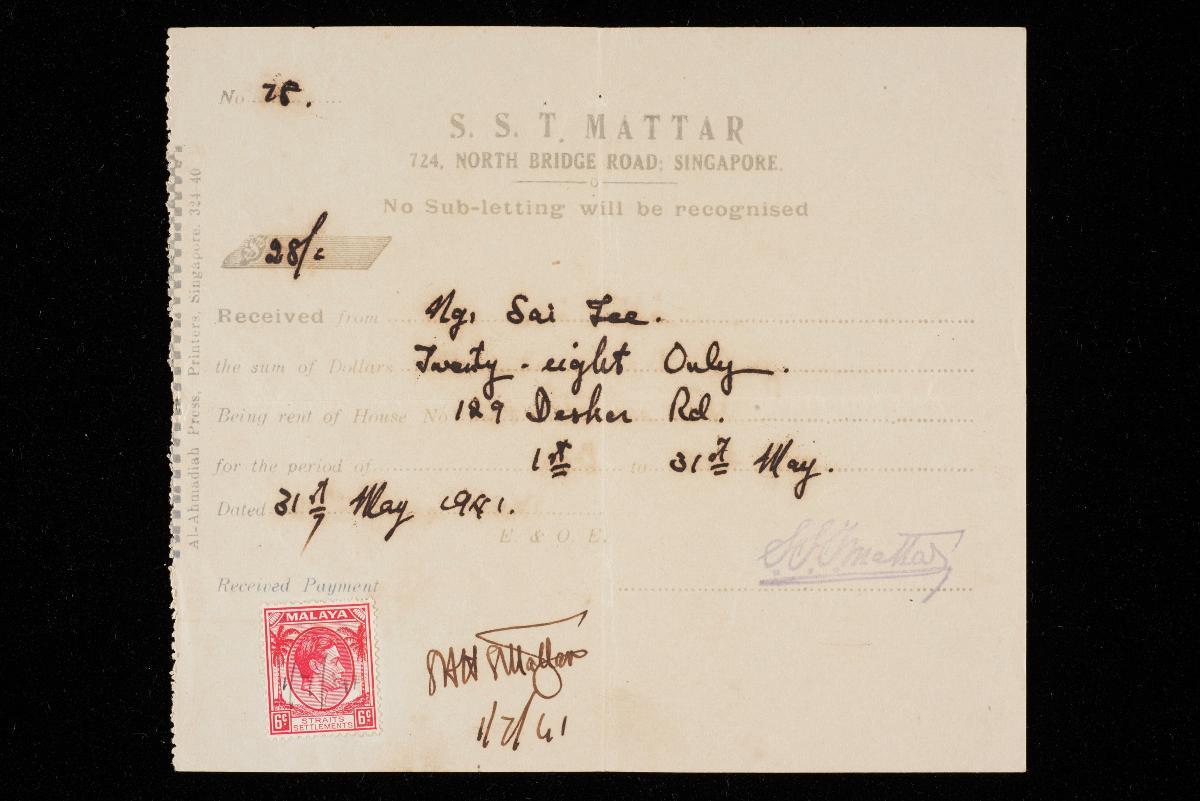 No 78.
S. S. T. MATTAR
724, NORTH BRIDGE ROAD; SINGAPORE.
No Sub-letting will be recognised
$ 28/-
Received from Ng. Sai Lee.
the sum of Dollars Twenty-eight Only.
Being rent of House No 129 Desker Rd.
for the period of 1st to 31st May.
Dated 31st May 1941.
E. & O. E.
S. S. T. Mattar
Received Payment
MALAYA
6c STRAITS SETTLEMENTS 6c
Mattar
1/7/41
Al-Ahmadiah Press, Printers, Singapore. 324-40